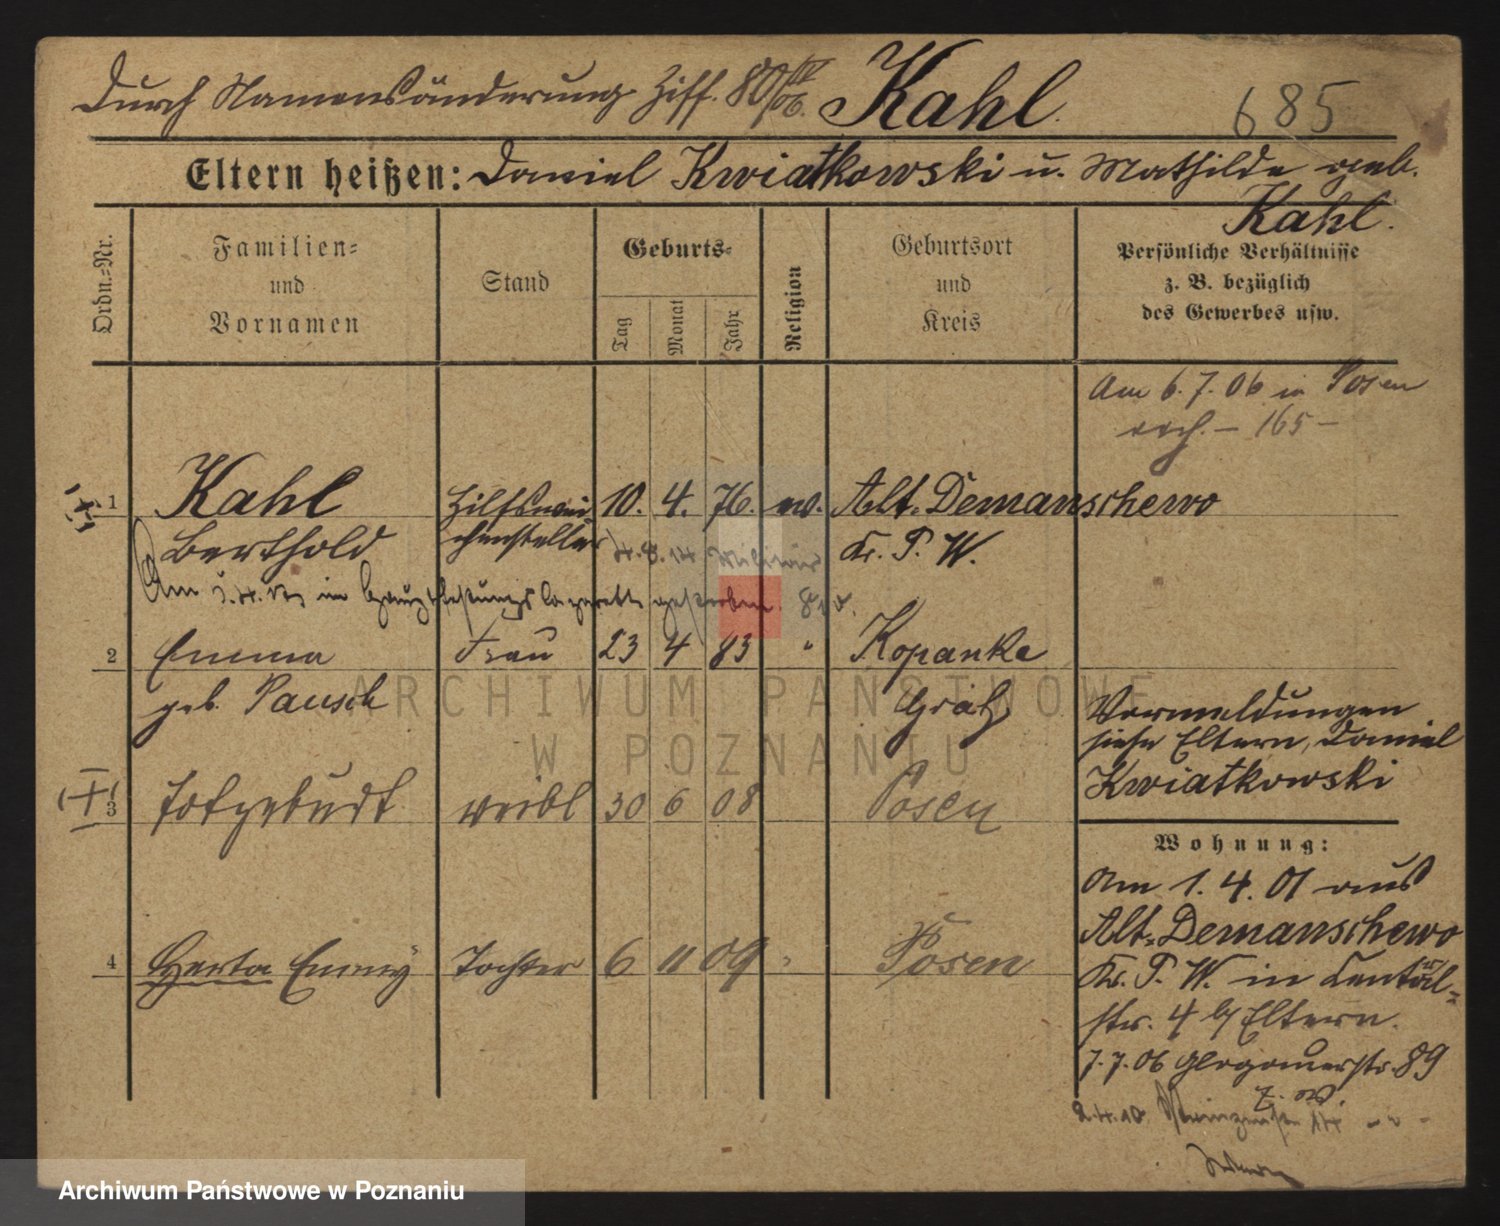 Durch Namensänderung Ziff. 80/IV 06. Kahl.
685
Eltern heißen: Daniel Kwiatkowski u. Mathilde geb.
Kahl.
Ordn.=Nr.
Familien=
und
Vornamen
Stand
Geburts=
Tag
Monat
Jahr
Religion
Geburtsort
und
Kreis
Persönliche Verhältnisse
z. B. bezüglich
des Gewerbes usw.
Am 6.7.06 in Posen
– 165 –
1 Kahl Hilfswei 10. 4. 76. ev. Alt-Demanschewo
Berthold chensteller 4.8.14 Militär Kr. P. W.
Am im gestorben.
2 Emma Frau 23 4 83 " Kopanke
geb. Pausch Grätz
Vormeldungen
siehe Eltern, Daniel
Kwiatkowski
3 Totgeburt weibl 30 6 08 Posen
Wohnung:
Am 1. 4. 01 aus
Alt-Demanschewo
Kr. P. W. in Central-
str. 4 b/ Eltern.
7.7.06 Glogauerstr. 89
4 Herta Emmy Tochter 6 11 09 " Posen
2.4.10 14
ARCHIWUM PAŃSTWOWE
W POZNANIU
Archiwum Państwowe w Poznaniu